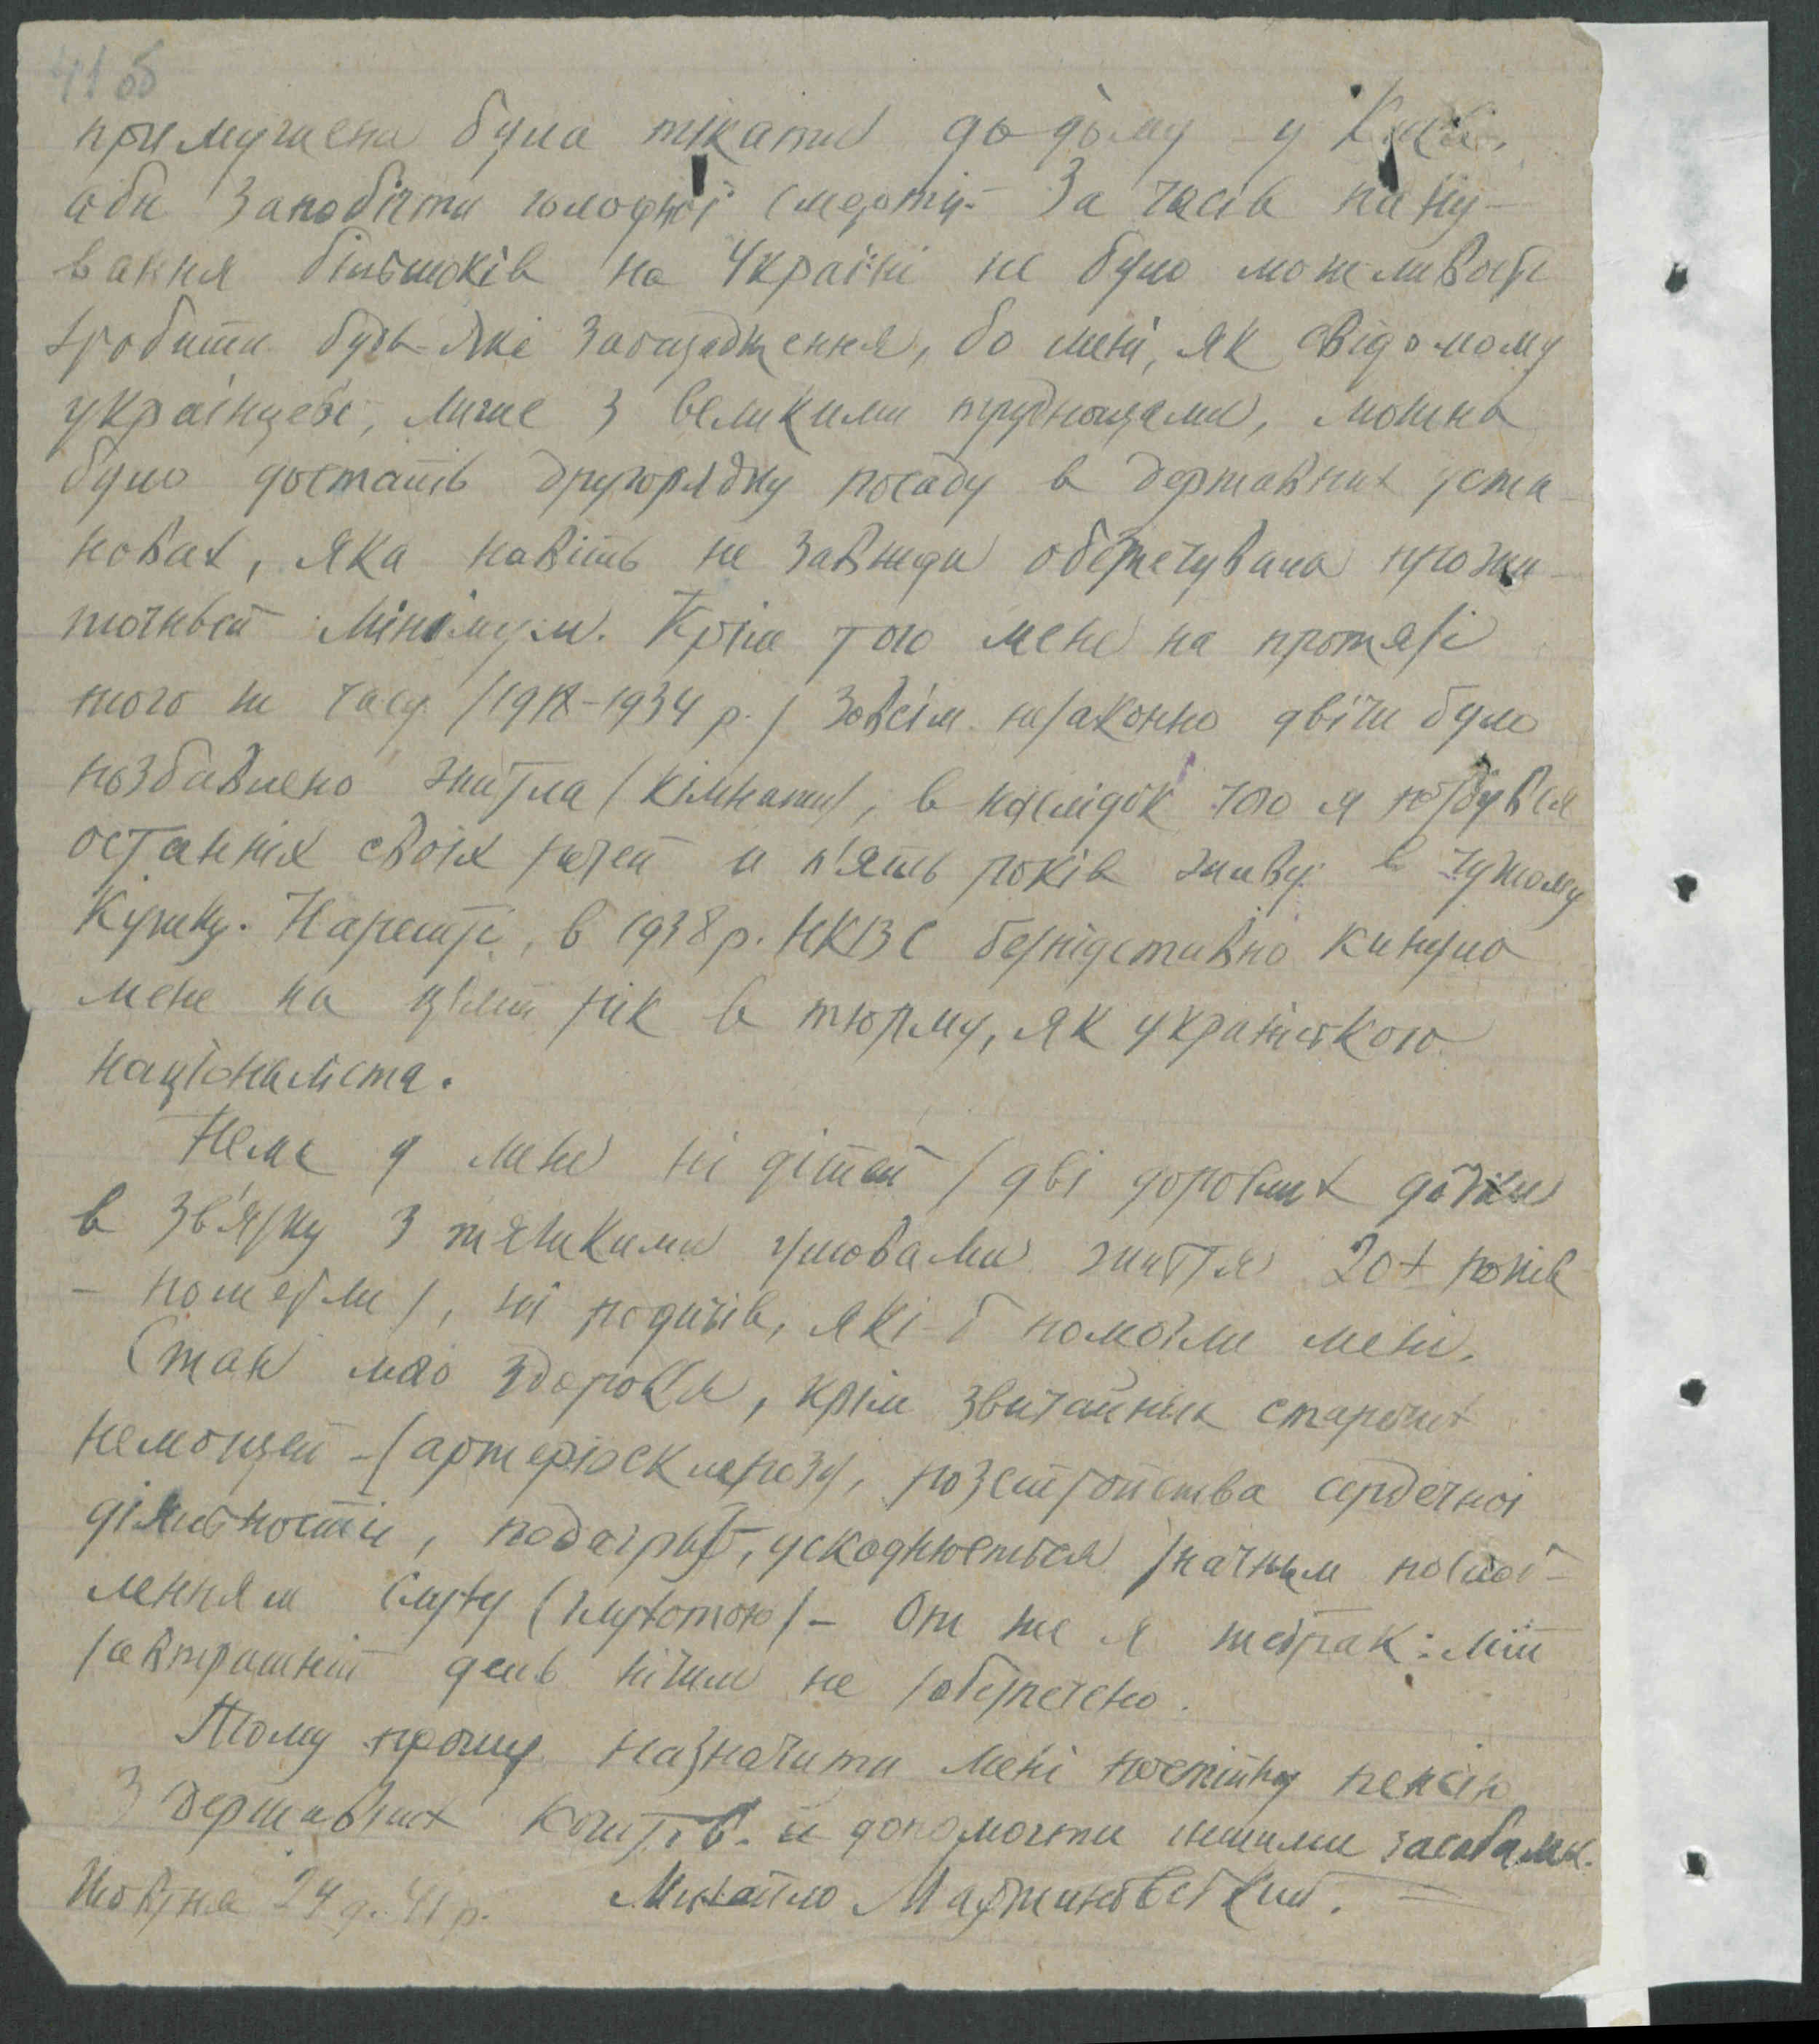 41 об
примушена була тікати до дому у Київ,
аби запобігти голодної смерти. За часів пану-
вання більшовиків на Україні не було можливості
зробити будь-які заощадження, бо мені, як свідомому
українцеві, лише з великими труднощами, можна
було достать другорядну посаду в державних уста-
новах, яка навіть не завжди обезпечувала прожи-
точний мінімум. Крім того мене на протязі
того ж часу /1918-1934 р./ зовсім незаконно двічі було
позбавлено житла /кімнати/, в наслідок чого я позбувся
останніх своїх речей и п'ять років живу в чужому
кутку. Нарешті, в 1938 р. НКВС безпідставно кинуло
мене на цілий рік в тюрму, як українського
націоналіста.
Нема у мене ні дітей /дві дорослих дочки
в зв'язку з тяжкими умовами життя 20х років
- померли/, ні родичів, які-б помогли мені.
Стан мого здоровля, крім звичайних старечих
немощей - /артеріосклерозу, розстройства сердечної
діяльности, подагры/, ускоднюється значным послаб-
ленням слуху (глухотою) - От же я жебрак: мій
завтрашній день нічим не забезпечено.
Тому прошу назначити мені постійну пенсію
з державних коштів и допомогти іншими засобами.
Жовтня 24 д. 41 р. Михайло Мартиновський.